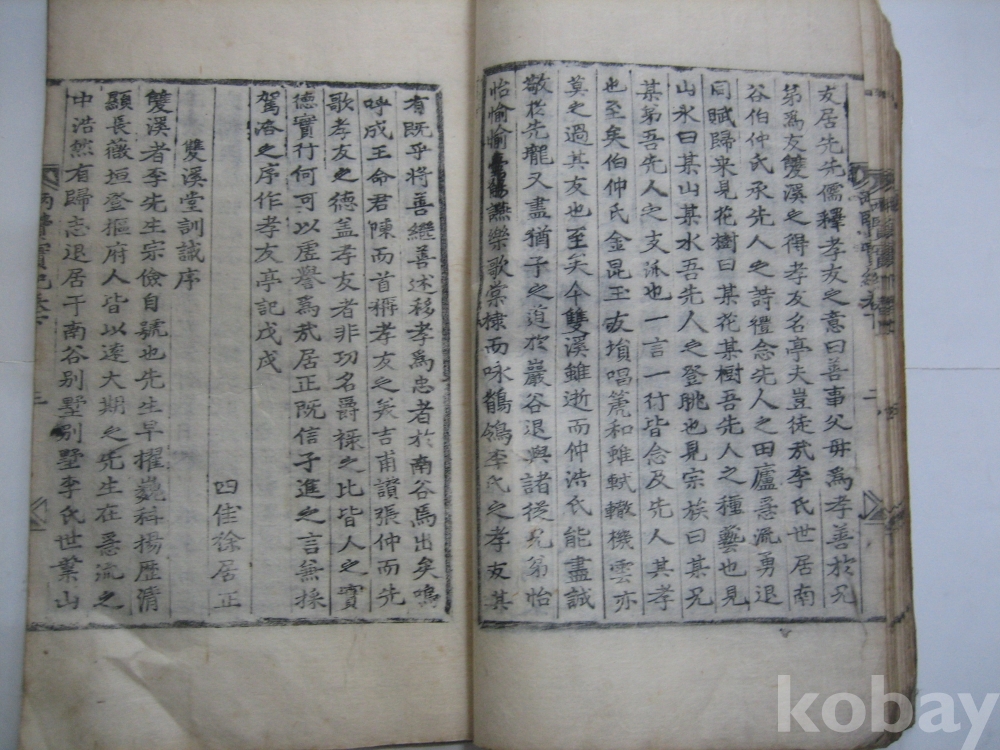 友居先先儒釋孝友之意曰善事父母爲孝善於兄
弟爲友雙溪之得孝友名亭夫豈徒㢤李氏世居南
谷伯仲氏承先人之詩禮念先人之田廬急流勇退
同賦歸來見花樹曰某花某樹吾先人之種藝也見
山水曰某山某水吾先人之登眺也見宗族曰某兄
某弟吾先人之支泒也一言一行皆念及先人其孝
也至矣伯仲氏金昆玉友塤唱箎和雖軾轍機雲亦
莫之過其友也至矣今雙溪雖逝而仲浩氏能盡誠
敬於先壠又盡猶子之道於巖谷退與諸從兄弟怡
怡愉愉讌樂歌棠棣而咏鶺鴒李氏之孝友其
有既乎將善繼善述移孝爲忠者於南谷焉出矣嗚
呼成王命君陳而首稱孝友之美吉甫讃張仲而先
歌孝友之德盖孝友者非功名爵祿之比皆人之實
德實行何可以虛譽爲㢤居正既信子進之言兼採
駕洛之序作孝友亭記戊戌
雙溪堂訓誡序
四佳徐居正
雙溪者李先生宗儉自號也先生早擢巍科揚歷清
顯長薇垣登樞府人皆以遠大期之先生在急流之
中浩然有歸志退居于南谷别墅别墅李氏世業山